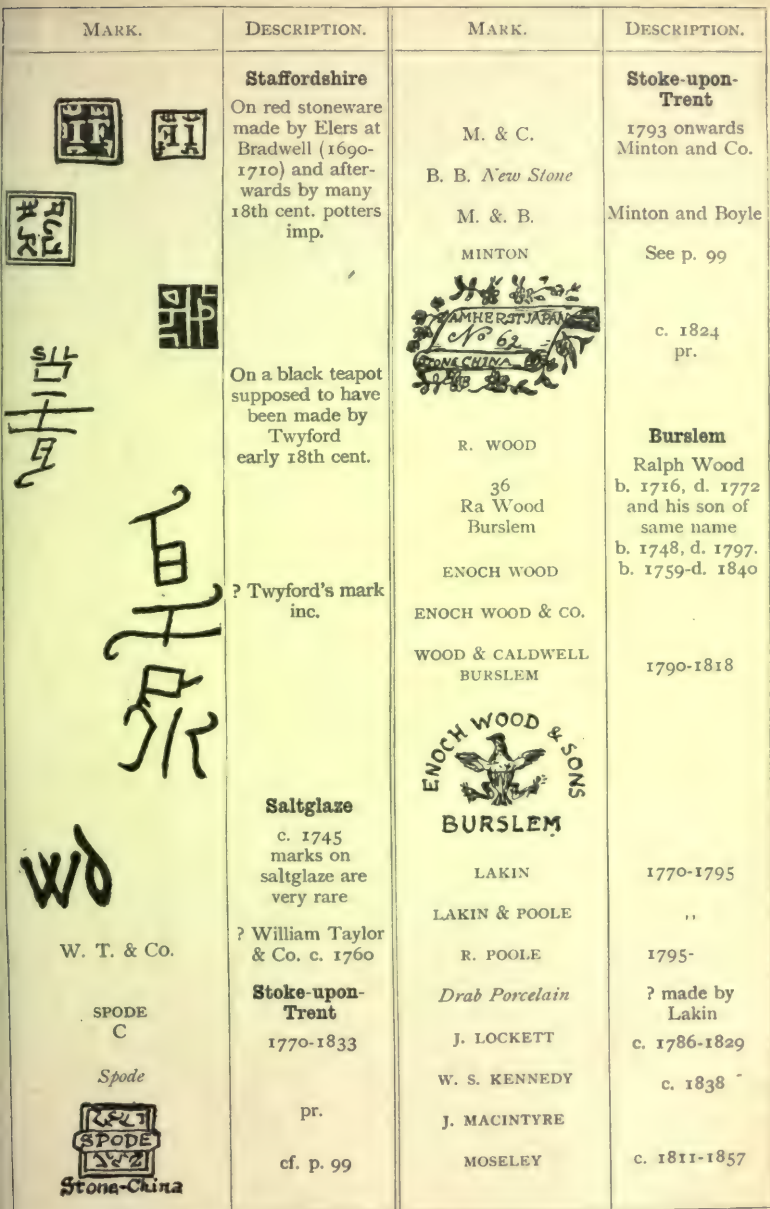 MARK.
DESCRIPTION.
Staffordshire
On red stoneware
made by Elers at
Bradwell (1690-
1710) and after-
wards by many
18th cent. potters
imp.
On a black teapot
supposed to have
been made by
Twyford
early 18th cent.
? Twyford's mark
inc.
Saltglaze
c. 1745
marks on
saltglaze are
very rare
W. T. & Co.
? William Taylor
& Co. c. 1760
Stoke-upon-
Trent
SPODE
C
1770-1833
Spode
pr.
SPODE
Stone-China
cf. p. 99
MARK.
DESCRIPTION.
Stoke-upon-
Trent
M. & C.
1793 onwards
Minton and Co.
B. B. New Stone
M. &. B.
Minton and Boyle
MINTON
See p. 99
AMHERST JAPAN
No 62
STONE CHINA
c. 1824
pr.
Burslem
R. WOOD
Ralph Wood
b. 1716, d. 1772
and his son of
same name
b. 1748, d. 1797.
36
Ra Wood
Burslem
ENOCH WOOD
b. 1759-d. 1840
ENOCH WOOD & CO.
WOOD & CALDWELL
BURSLEM
1790-1818
ENOCH WOOD & SONS
BURSLEM
LAKIN
1770-1795
LAKIN & POOLE
,,
R. POOLE
1795-
Drab Porcelain
? made by
Lakin
J. LOCKETT
c. 1786-1829
W. S. KENNEDY
c. 1838
J. MACINTYRE
MOSELEY
c. 1811-1857